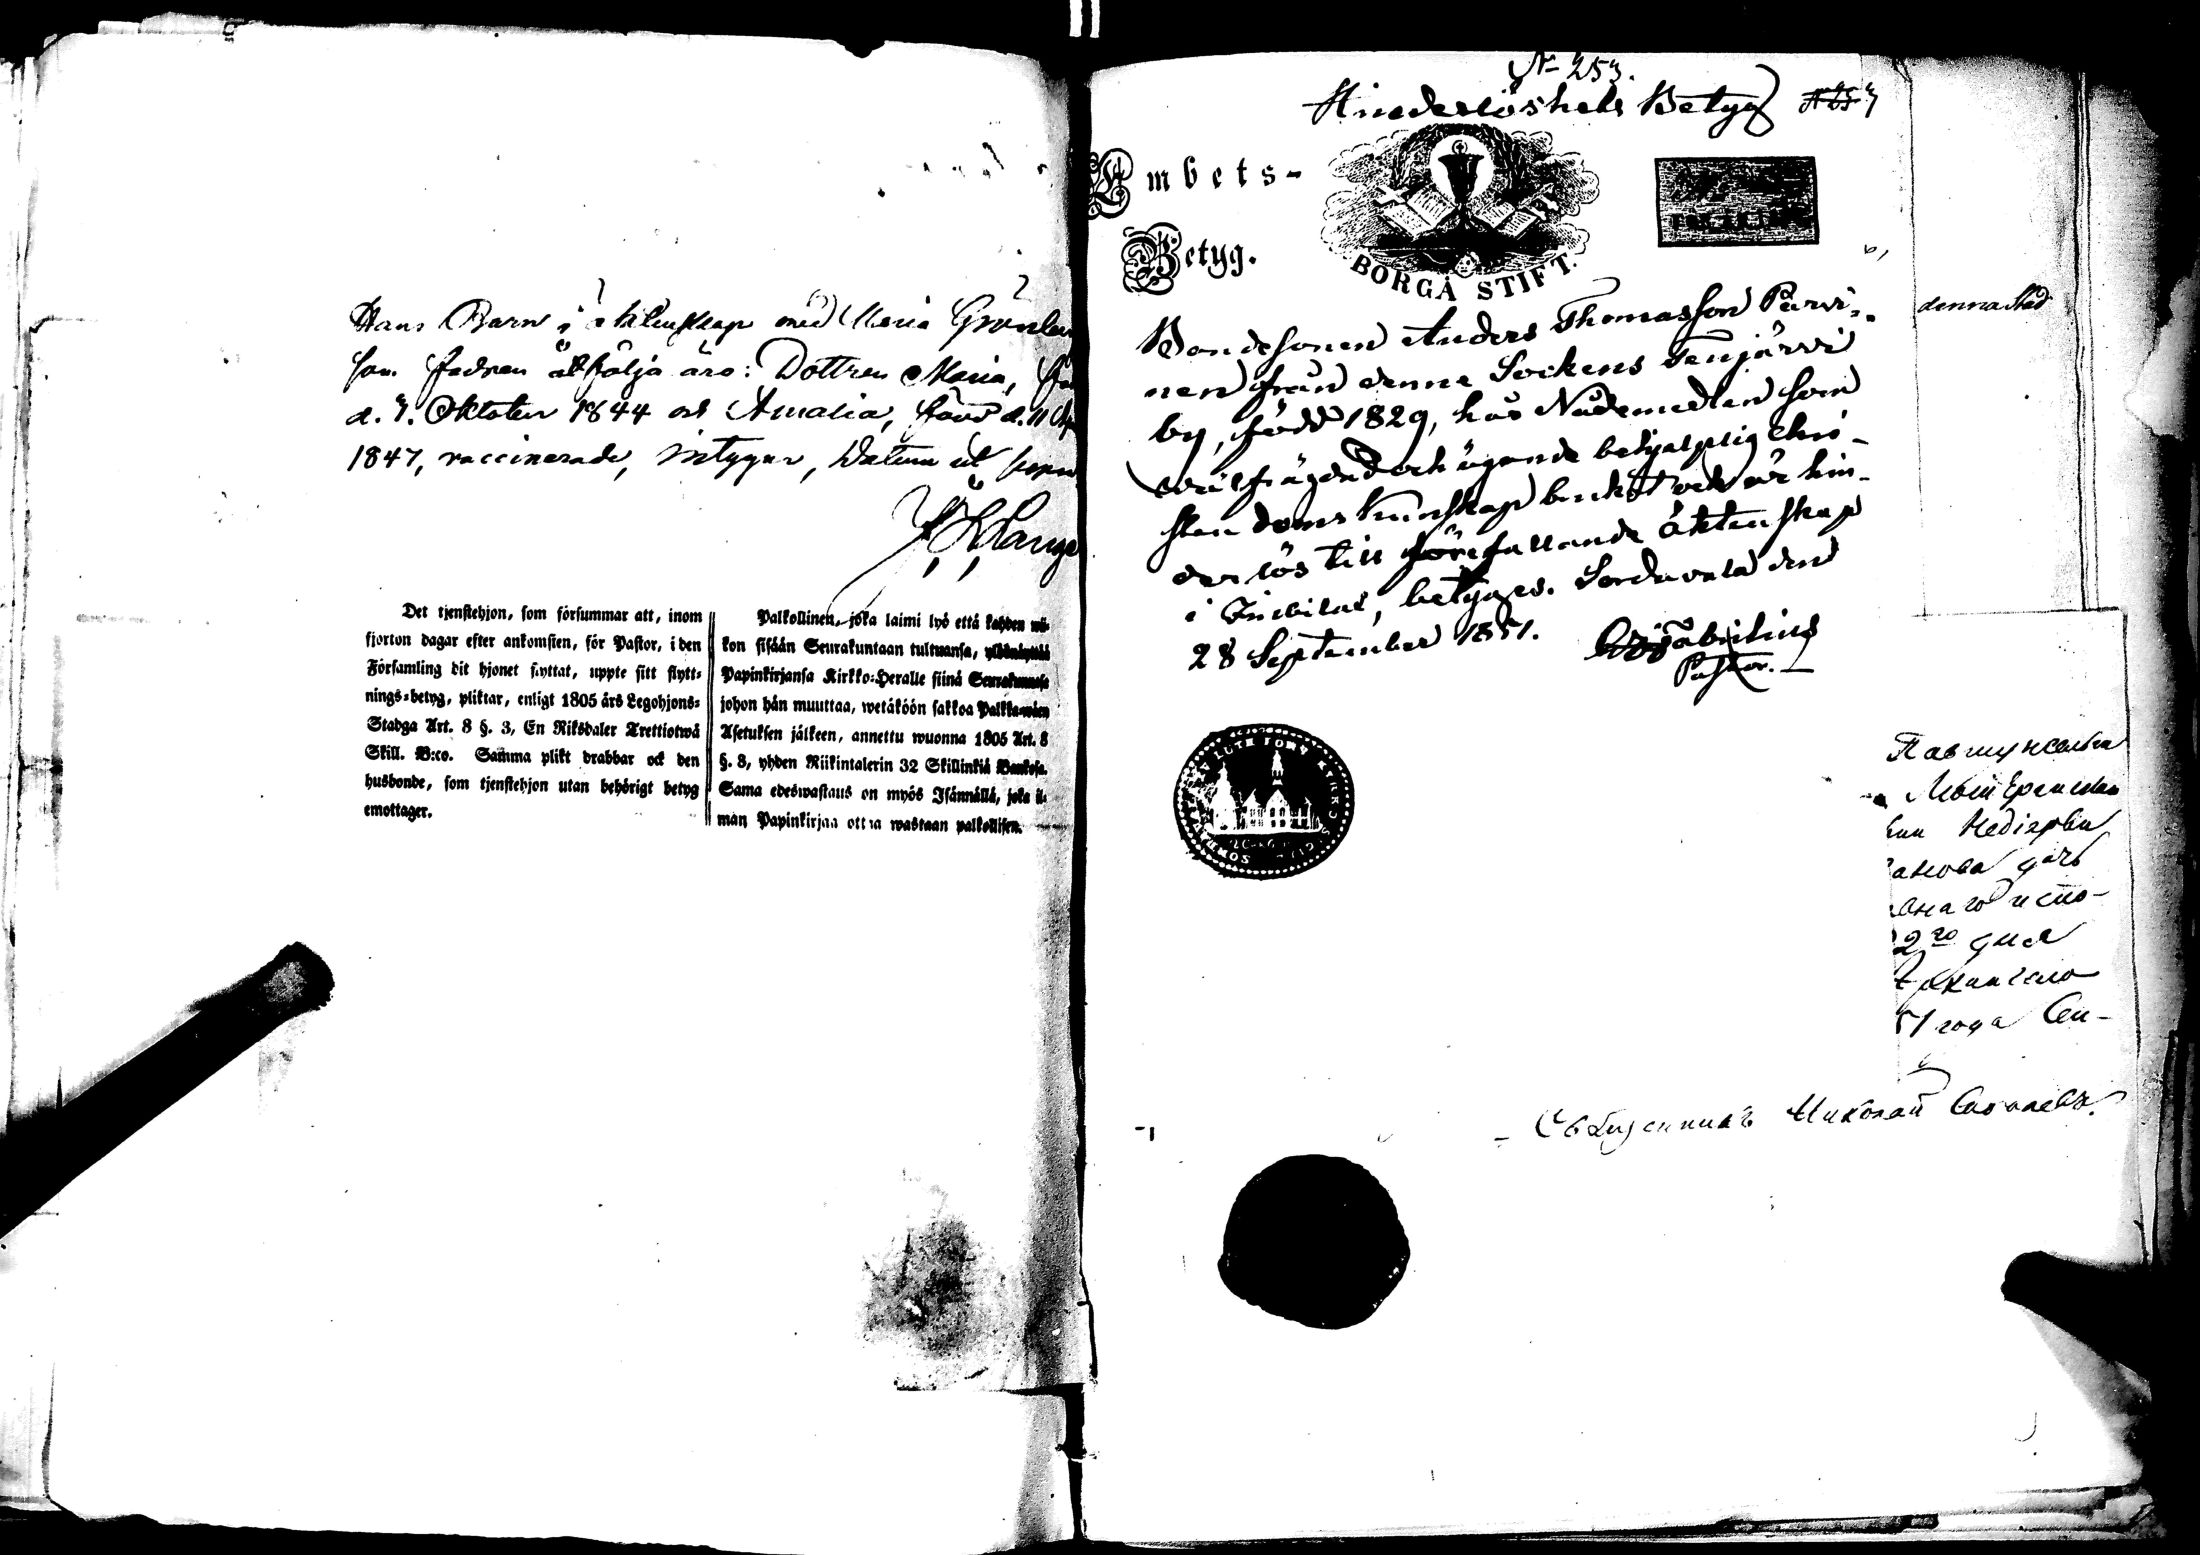 Hans Barn i äktenskap med Maria Grönlun
som fadren åtfölja äro: Dottren Maria, född
d. 7. Oktober 1844 och Amalia, född d. 11
1847, vaccinerade, intygar, Datum ut supra
Det tjenstehjon, som försummar att, inom
fjorton dagar efter ankomsten, för Pastor, i den
Församling dit hjonet flyttat, uppte sitt flytt-
nings-betyg, pliktar, enligt 1805 års Legohjons-
Stadga Art. 8 §. 3, En Riksdaler Trettiotwå
Skill. B:co. Samma plikt drabbar ock den
husbonde, som tjenstehjon utan behörigt betyg
emottager.
Palkollinen, joka laimi lyö että kahden wii-
kon sisään Seurakuntaan tultuansa, ylösnäyttää
Papinkirjansa Kirkko-Herralle siinä Seurakunnassa
johon hän muuttaa, wetäköön sakkoa Palkkawäen
Asetuksen jälkeen, annettu wuonna 1805 Art. 8
§. 3, yhden Riikintalerin 32 Skillinkiä Bankosa.
Sama edeswastaus on myös Isännällä, joka il-
man Papinkirjaa ottaa wastaan palkollisen.
N 253.
Hinderlöshets Betyg
Embets-
Betyg.
BORGÅ STIFT.
Bondesonen Anders Thomasson Parvi-
nen från denne Sockens Tenjärvi
by, född 1829, har Nådemedlen som
wälfrägdad och ägande behjelplig chri-
stendoms kunskap brukat och är hin-
derlös till förefallande äktenskap
i Imbilax, betygas. Sordavala den
28 September 1851.
Pastor.
denna Stad
анова дочь
внаго испо-
2го дня
51 года Сен-
Священникъ Николай